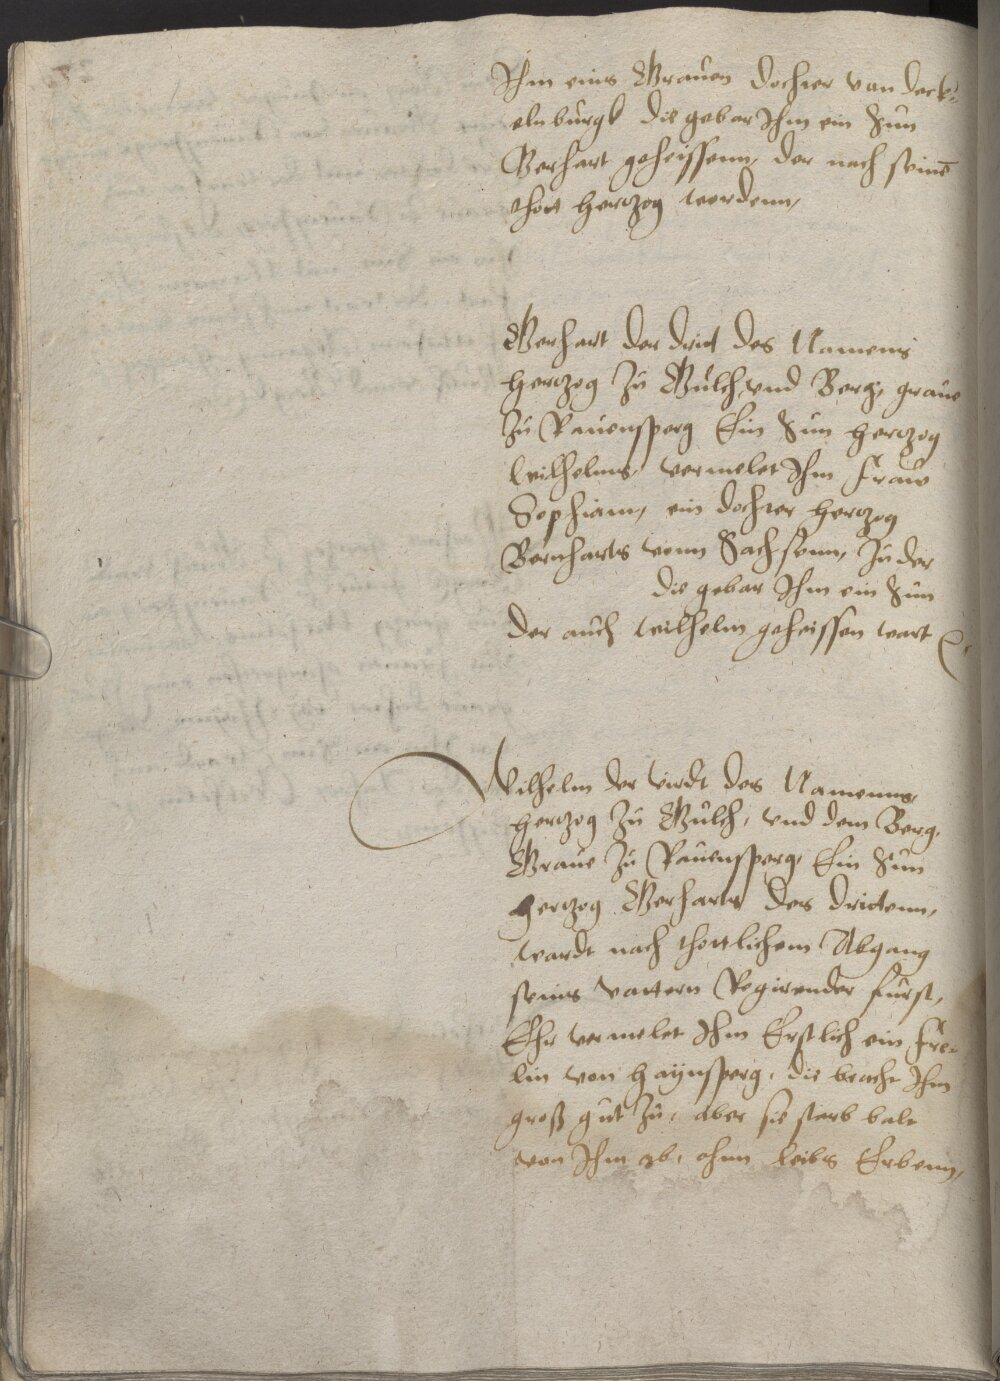 Ihm eins Grauen dochter van deck¬
elnburgk die gebar Ihm ein Sun
Gerhart geheissenn, der nach seinē
thott hertzog wordenn,
Gerhart der dritt des Namens
hertzog zu Gulch vnd Berg, graue
zu Rauensperg Ein Sun hertzog
Wilhelms, vermelet Ihm fraw
Sophiam, ein dochter hertzog
Bernharts vonn Sachsenn, zu der
die gebar Ihm ein Sun
der auch wilhelm geheissen wart
Wilhelm der virdt des Namenns,
hertzog zu Gulch, vnd dem Berg,
Graue zu Rauensperg, Ein Sun
hertzog Gerharts des drittenn,
wardt nach thottlichem Abgang
seins vattern Regirender fürst,
Ehr vermelet Ihm Erstlich ein fre¬
lin von Haÿnsperg, die bracht Ihm
groß gut zu, aber sie starb balt
von Ihm ab, ohnn leibs Erbenn,